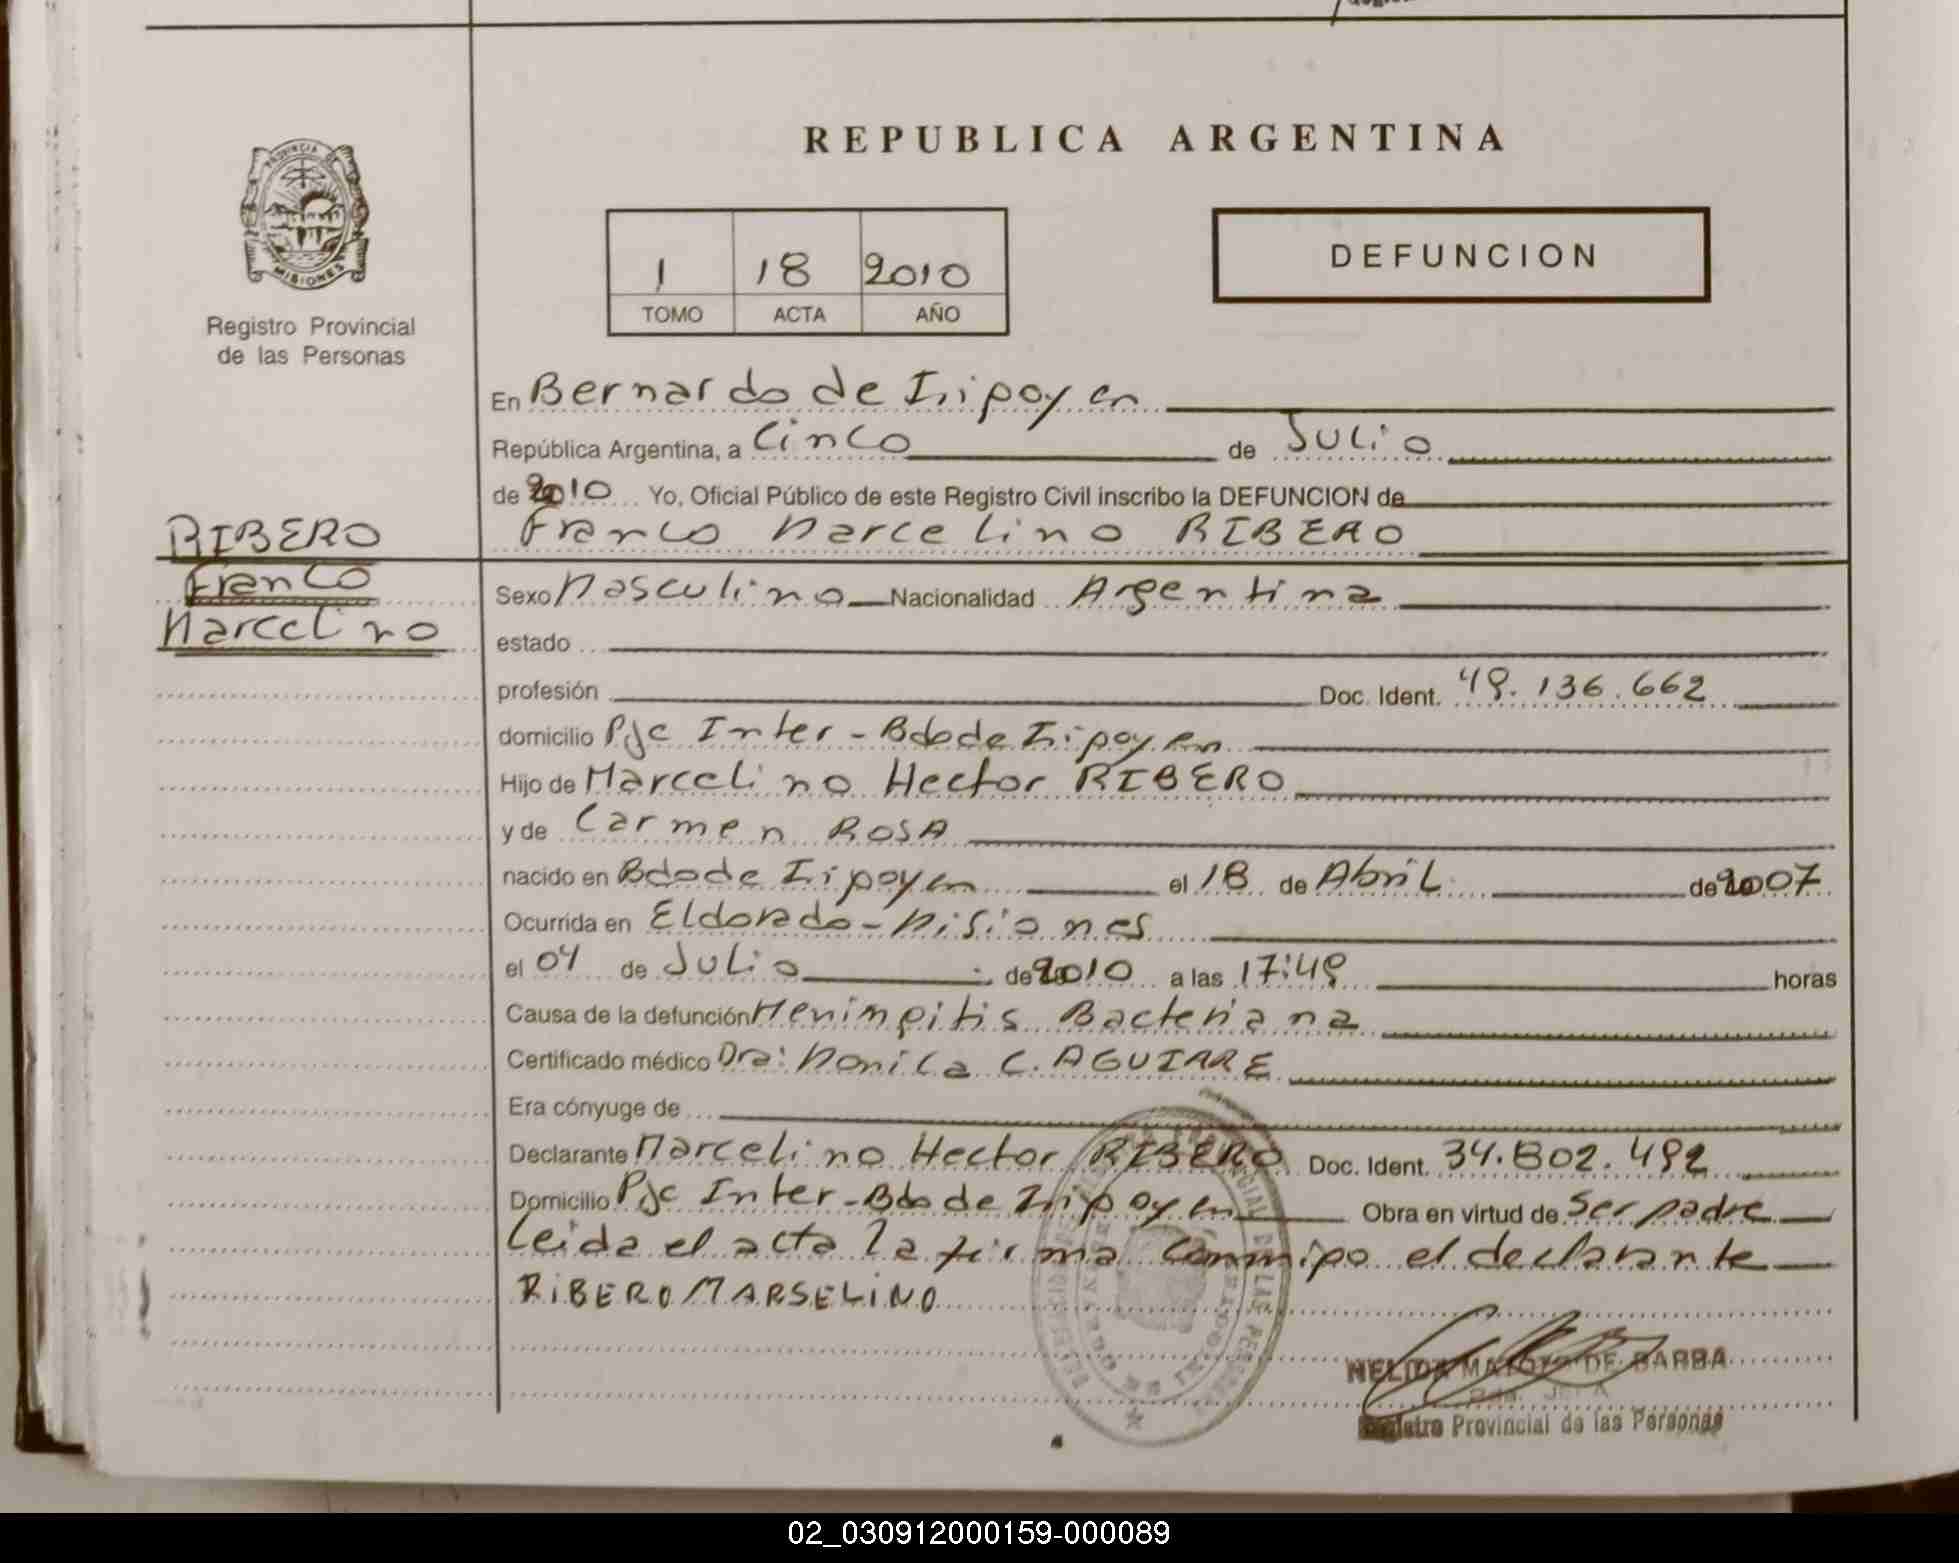 REPUBLICA ARGENTINA
PROVINCIA DE
MISIONES
Registro Provincial
de las Personas
1 18 2010
TOMO ACTA AÑO
DEFUNCION
En Bernardo de Irigoyen
República Argentina, a Cinco de Julio
de 2010 Yo, Oficial Público de este Registro Civil inscribo la DEFUNCION de
RIBERO
Franco Marcelino RIBERO
Franco
Marcelino
Sexo Masculino Nacionalidad Argentina
estado
profesión Doc. Ident. 49.136.662
domicilio Pje Inter - Bdo de Irigoyen
Hijo de Marcelino Hector RIBERO
y de Carmen ROSA
nacido en Bdo de Irigoyen el 18 de Abril de 2007
Ocurrida en Eldorado - Misiones
el 04 de Julio de 2010 a las 17:49 horas
Causa de la defunción Meningitis Bacteriana
Certificado médico Dra: Monica C. AGUIRRE
Era cónyuge de
Declarante Marcelino Hector RIBERO Doc. Ident. 34.802.492
Domicilio Pje Inter - Bdo de Irigoyen Obra en virtud de Ser padre
Leida el acta la firma conmigo el declarante
RIBERO MARSELINO
NELIDA DE BARBA
Registro Provincial de las Personas
02_030912000159-000089